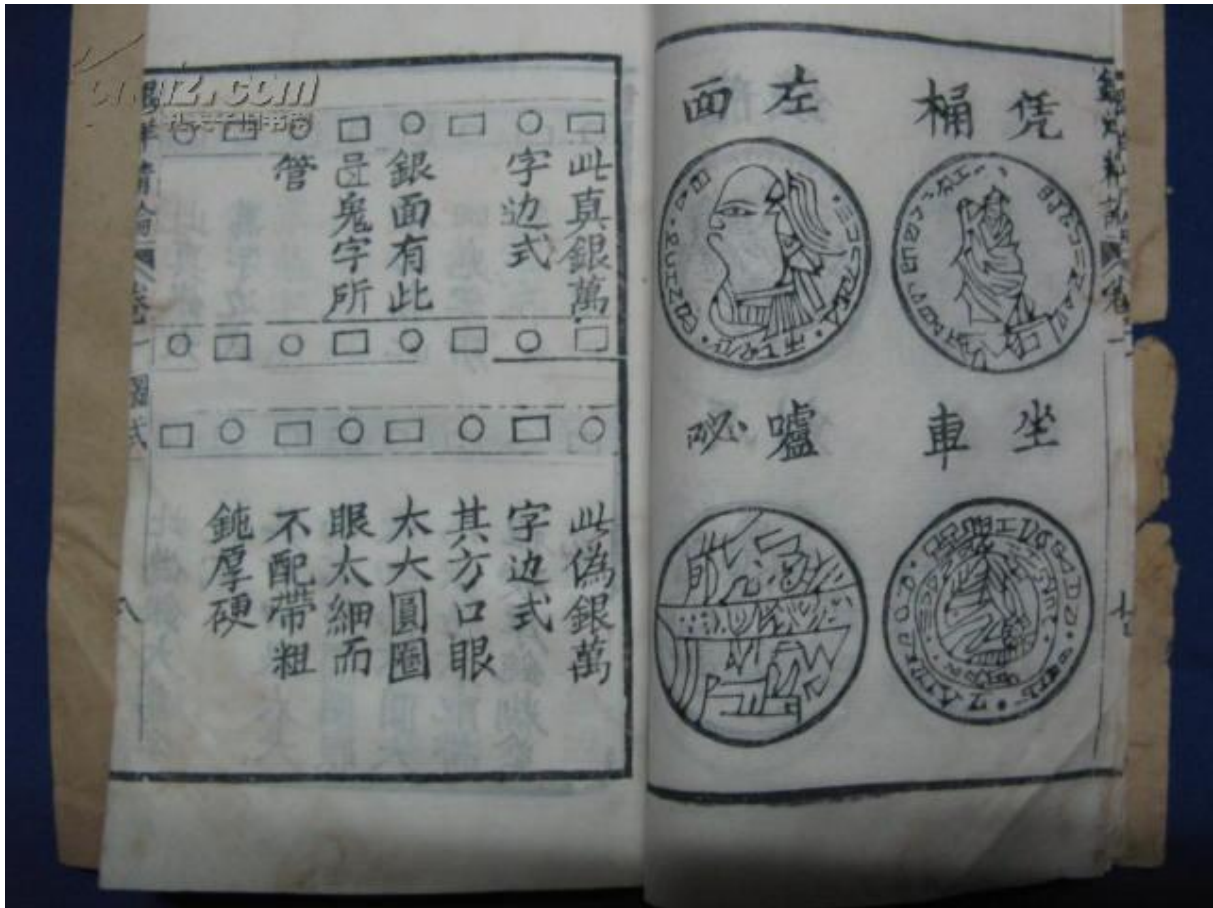 凭桶
左面
坐車
嚧咇
此真銀萬
字边式
銀面有此
鬼字所
管
此偽銀萬
字边式
其方口眼
太大圓圈
眼太細而
不配帶粗
鈍厚硬
卷一
八